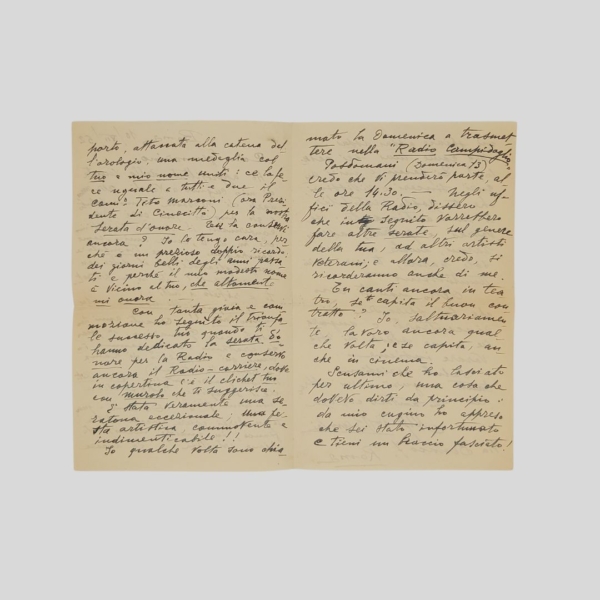 porto, attaccata alla catena del
l'orologio, una medaglia col
tuo e mio nome uniti: ce la fe-
ce uguale a tutti e due il
Com. Tito Marconi (ora Presi
dente di Cinecittà) per la nostra
serata d'onore. Tu la conservi
ancora? Io la tengo cara, per
chè è un prezioso doppio ricordo
dei giorni belli degli anni passa
ti e perchè il mio modesto nome
è vicino al tuo, che altamente
mi onora.
Con tanta gioia e com
mozione ho seguito il trionfa
le successo, quando ti
hanno dedicato la serata d'o-
nore per la Radio e conservo
ancora il Radio-corriere, dove
in copertina c'è il clichet tuo
che ti suggeriva.
È stata veramente una se
ratona eccezionale; una fe-
sta artistica, commovente e
indimenticabile!!!
Io qualche volta sono chia
mato la Domenica a trasmet
tere nella "Radio Campidoglio"
Posdomani (Domenica 13)
credo che vi prenderò parte, al
le ore 14.30. — Negli uf-
fici della Radio, dissero
che in seguito vorrebbero
fare altre serate, sul genere
della tua, ad altri artisti
Veterani; e allora, credo, si
ricorderanno anche di me.
Tu canti ancora in tea
tro, se ti capita il buon con
tratto? Io saltuariamen
te lavoro ancora qual
che volta, e se capita, an
che in cinema.
Scusami che ho lasciato
per ultimo, una cosa che
dovevo dirti da principio:
da mio cugino ho appreso
che sei stato infortunato
e tieni un braccio fasciato!